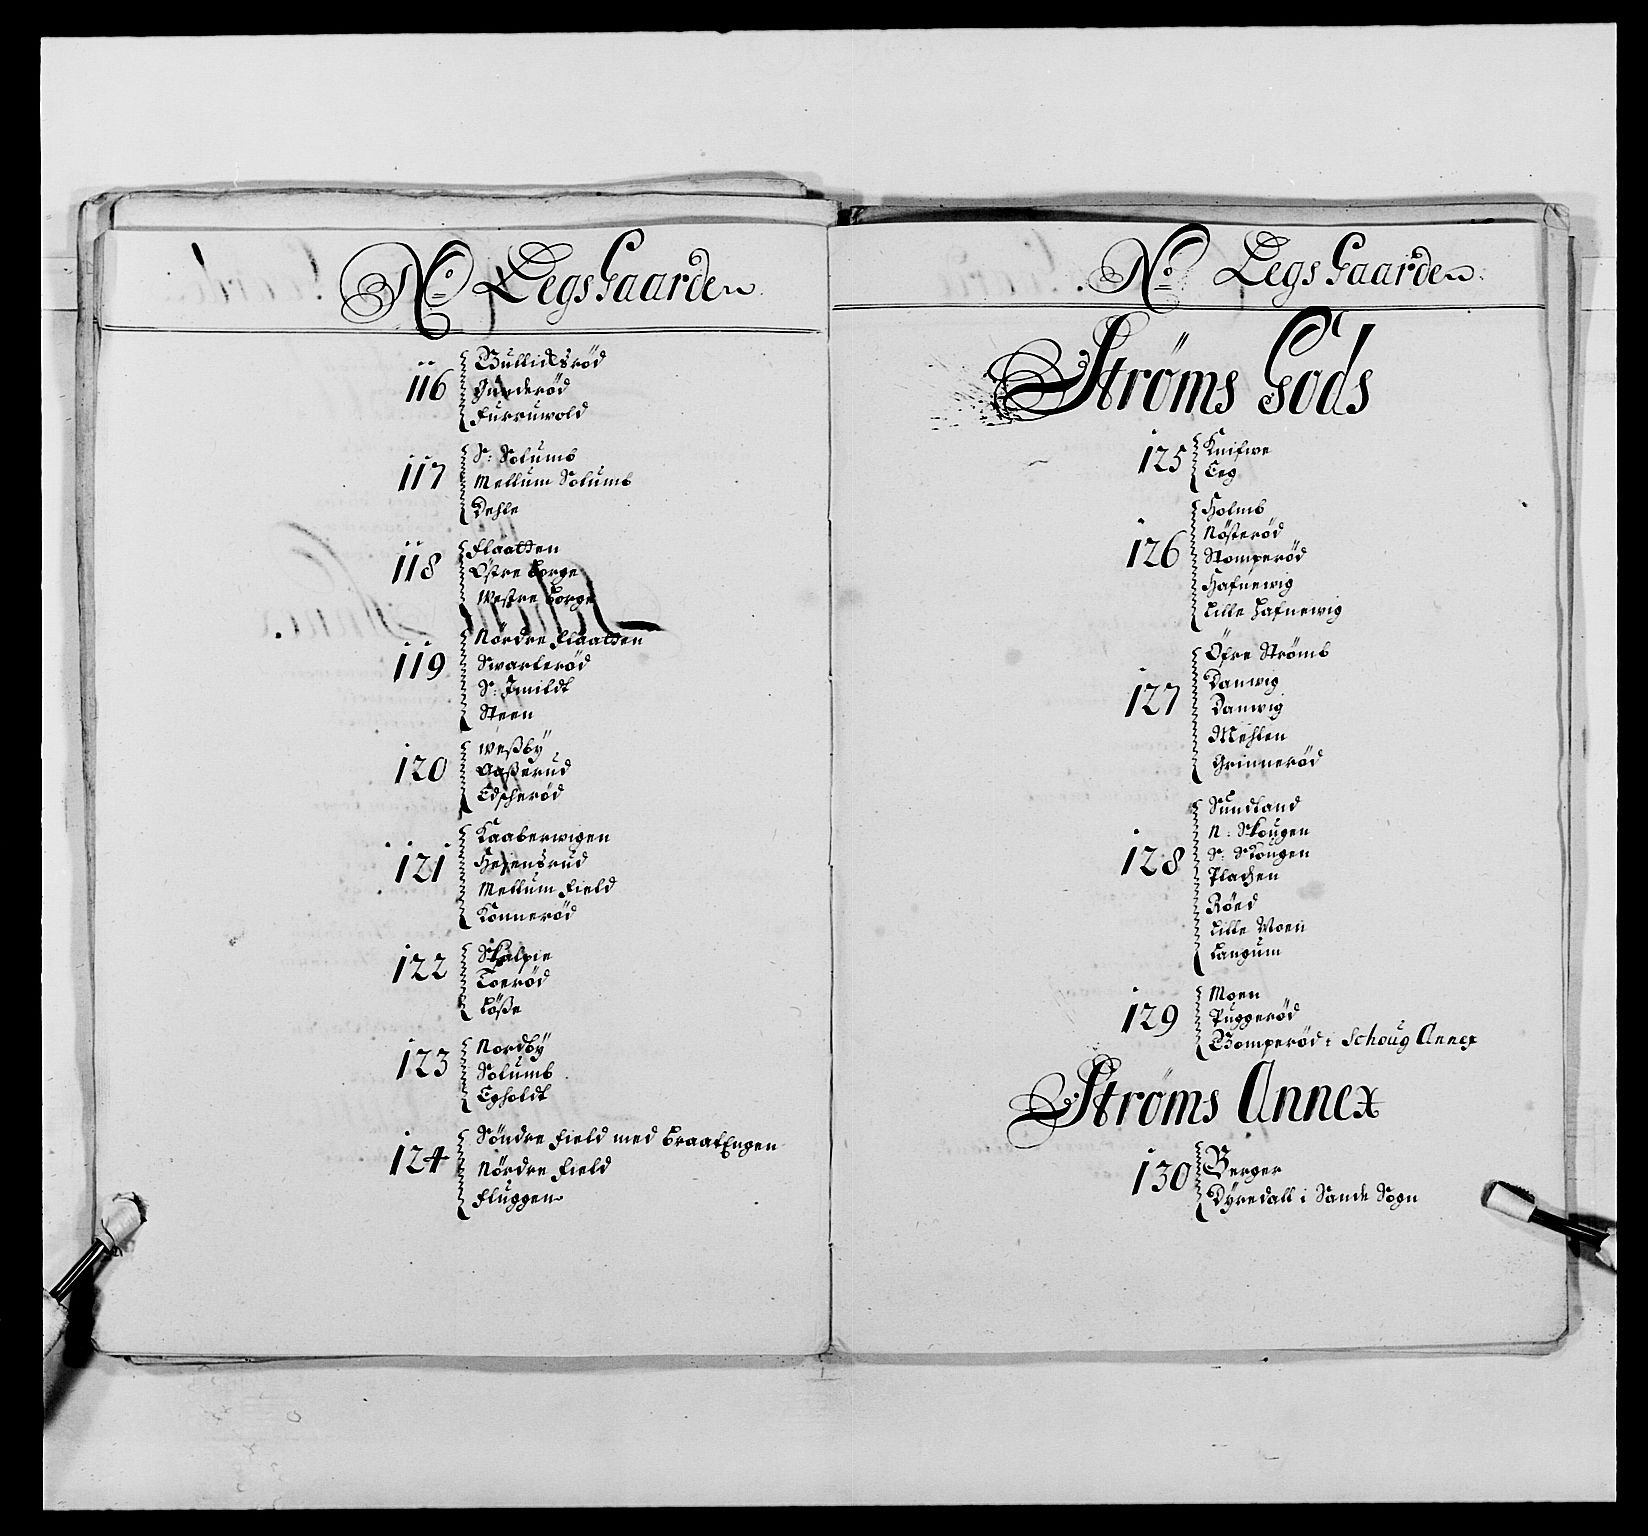 No Legs Gaarden
116 Bullidsröd
Gunderöd
Furruwold
117 S: Solumb
Mellum Solumb
Dehle
118 Flaatten
Östre Borge
Westre Borge
119 Nördre Flaatten
Swarteröd
S: Imildt
Steen
120 Weßby
Aaßerud
Edscheröd
121 Kaaberwigen
Hesensrud
Mellum Field
Konneröd
122 Skalpie
Toeröd
Löße
123 Nordby
Solumb
Egholdt
124 Söndre Field med BraatEngen
Nördre Field
Fluggen
No Legs Gaarden
Ströms Gods
125 Knifwe
Teg
126 Holmb
Nösteröd
Stomperöd
Hafnewig
Lille Hafnewig
127 Öfre Strömb
Danwig
Danwig
Mehlen
Grinneröd
128 Sundland
N: Skougen
S: Skougen
Plachen
Röed
Lille Moen
Langum
129 Moen
Puggeröd
Bomperöd i Schoug Annex
Ströms Annex
130 Berger
Dyredall i Sande Sogn